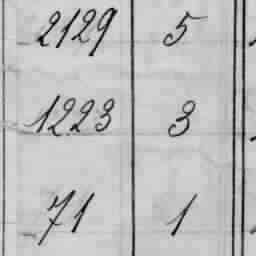 2129 5
1223 3
71 1